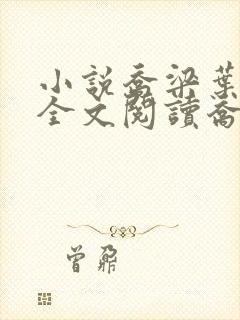 小説喬梁葉
全文閱讀喬
曾鼐